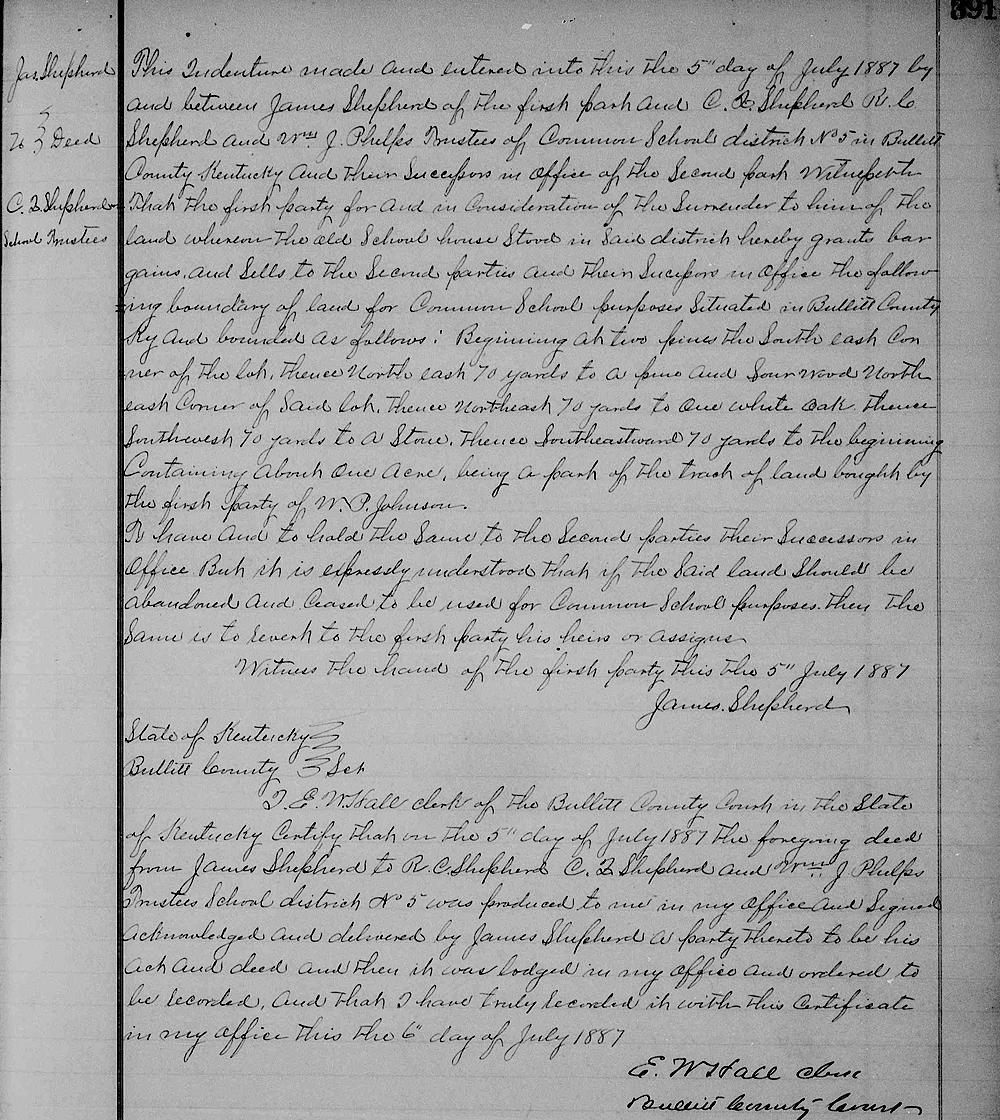 391
Jas. Shepherd
To } Deed
C. Z. Shepherd
School Trustees
This Indenture made and entered into this the 5" day of July 1887 by
and between James Shepherd of the first part and C. Z. Shepherd R. C
Shepherd and Wm J. Phelps Trustees of Common School district No 5 in Bullitt
County Kentucky and their Successors in Office of the Second part Witnesseth
That the first party for and in Consideration of the Surrender to him of the
land whereon the old School house Stood in Said district hereby grants bar
gains, and Sells to the Second parties and their Sucessors in Office the follow
ing boundary of land for Common School purposes Situated in Bullitt County
Ky and bounded as follows: Beginning at two pines the South east Cor
ner of the lot, thence North east 70 yards to a pine and Sour wood North
east Corner of Said lot, thence Northeast 70 yards to One white Oak. thence
Southwest 70 yards to a Stone, thence Southeastward 70 yards to the beginning
Containing about One Acre, being a part of the tract of land bought by
the first party of W. P. Johnson.
To have and to hold the Same to the Second parties their Successors in
Office. But it is expressly understood that if the Said land Should be
abandoned and Ceased to be used for Common School purposes. then the
Same is to revert to the first party his heirs or assigns
Witness the hand of the first party this the 5" July 1887
James. Shepherd
State of Kentucky }
Bullitt County } Sct
I. E. W Hall clerk of the Bullitt County Court in the State
of Kentucky Certify that on the 5" day of July 1887 the foregoing deed
from James Shepherd to R. C. Shepherd C. Z Shepherd and Wm J Phelps
Trustees School district No 5 was produced to me in my Office and Signed
acknowledged and delivered by James Shepherd a party thereto to be his
act and deed and then it was lodged in my Office and ordered to
be recorded, and that I have truly recorded it with this Certificate
in my Office this the 6" day of July 1887
E. W Hall Clerk
Bullitt County Court